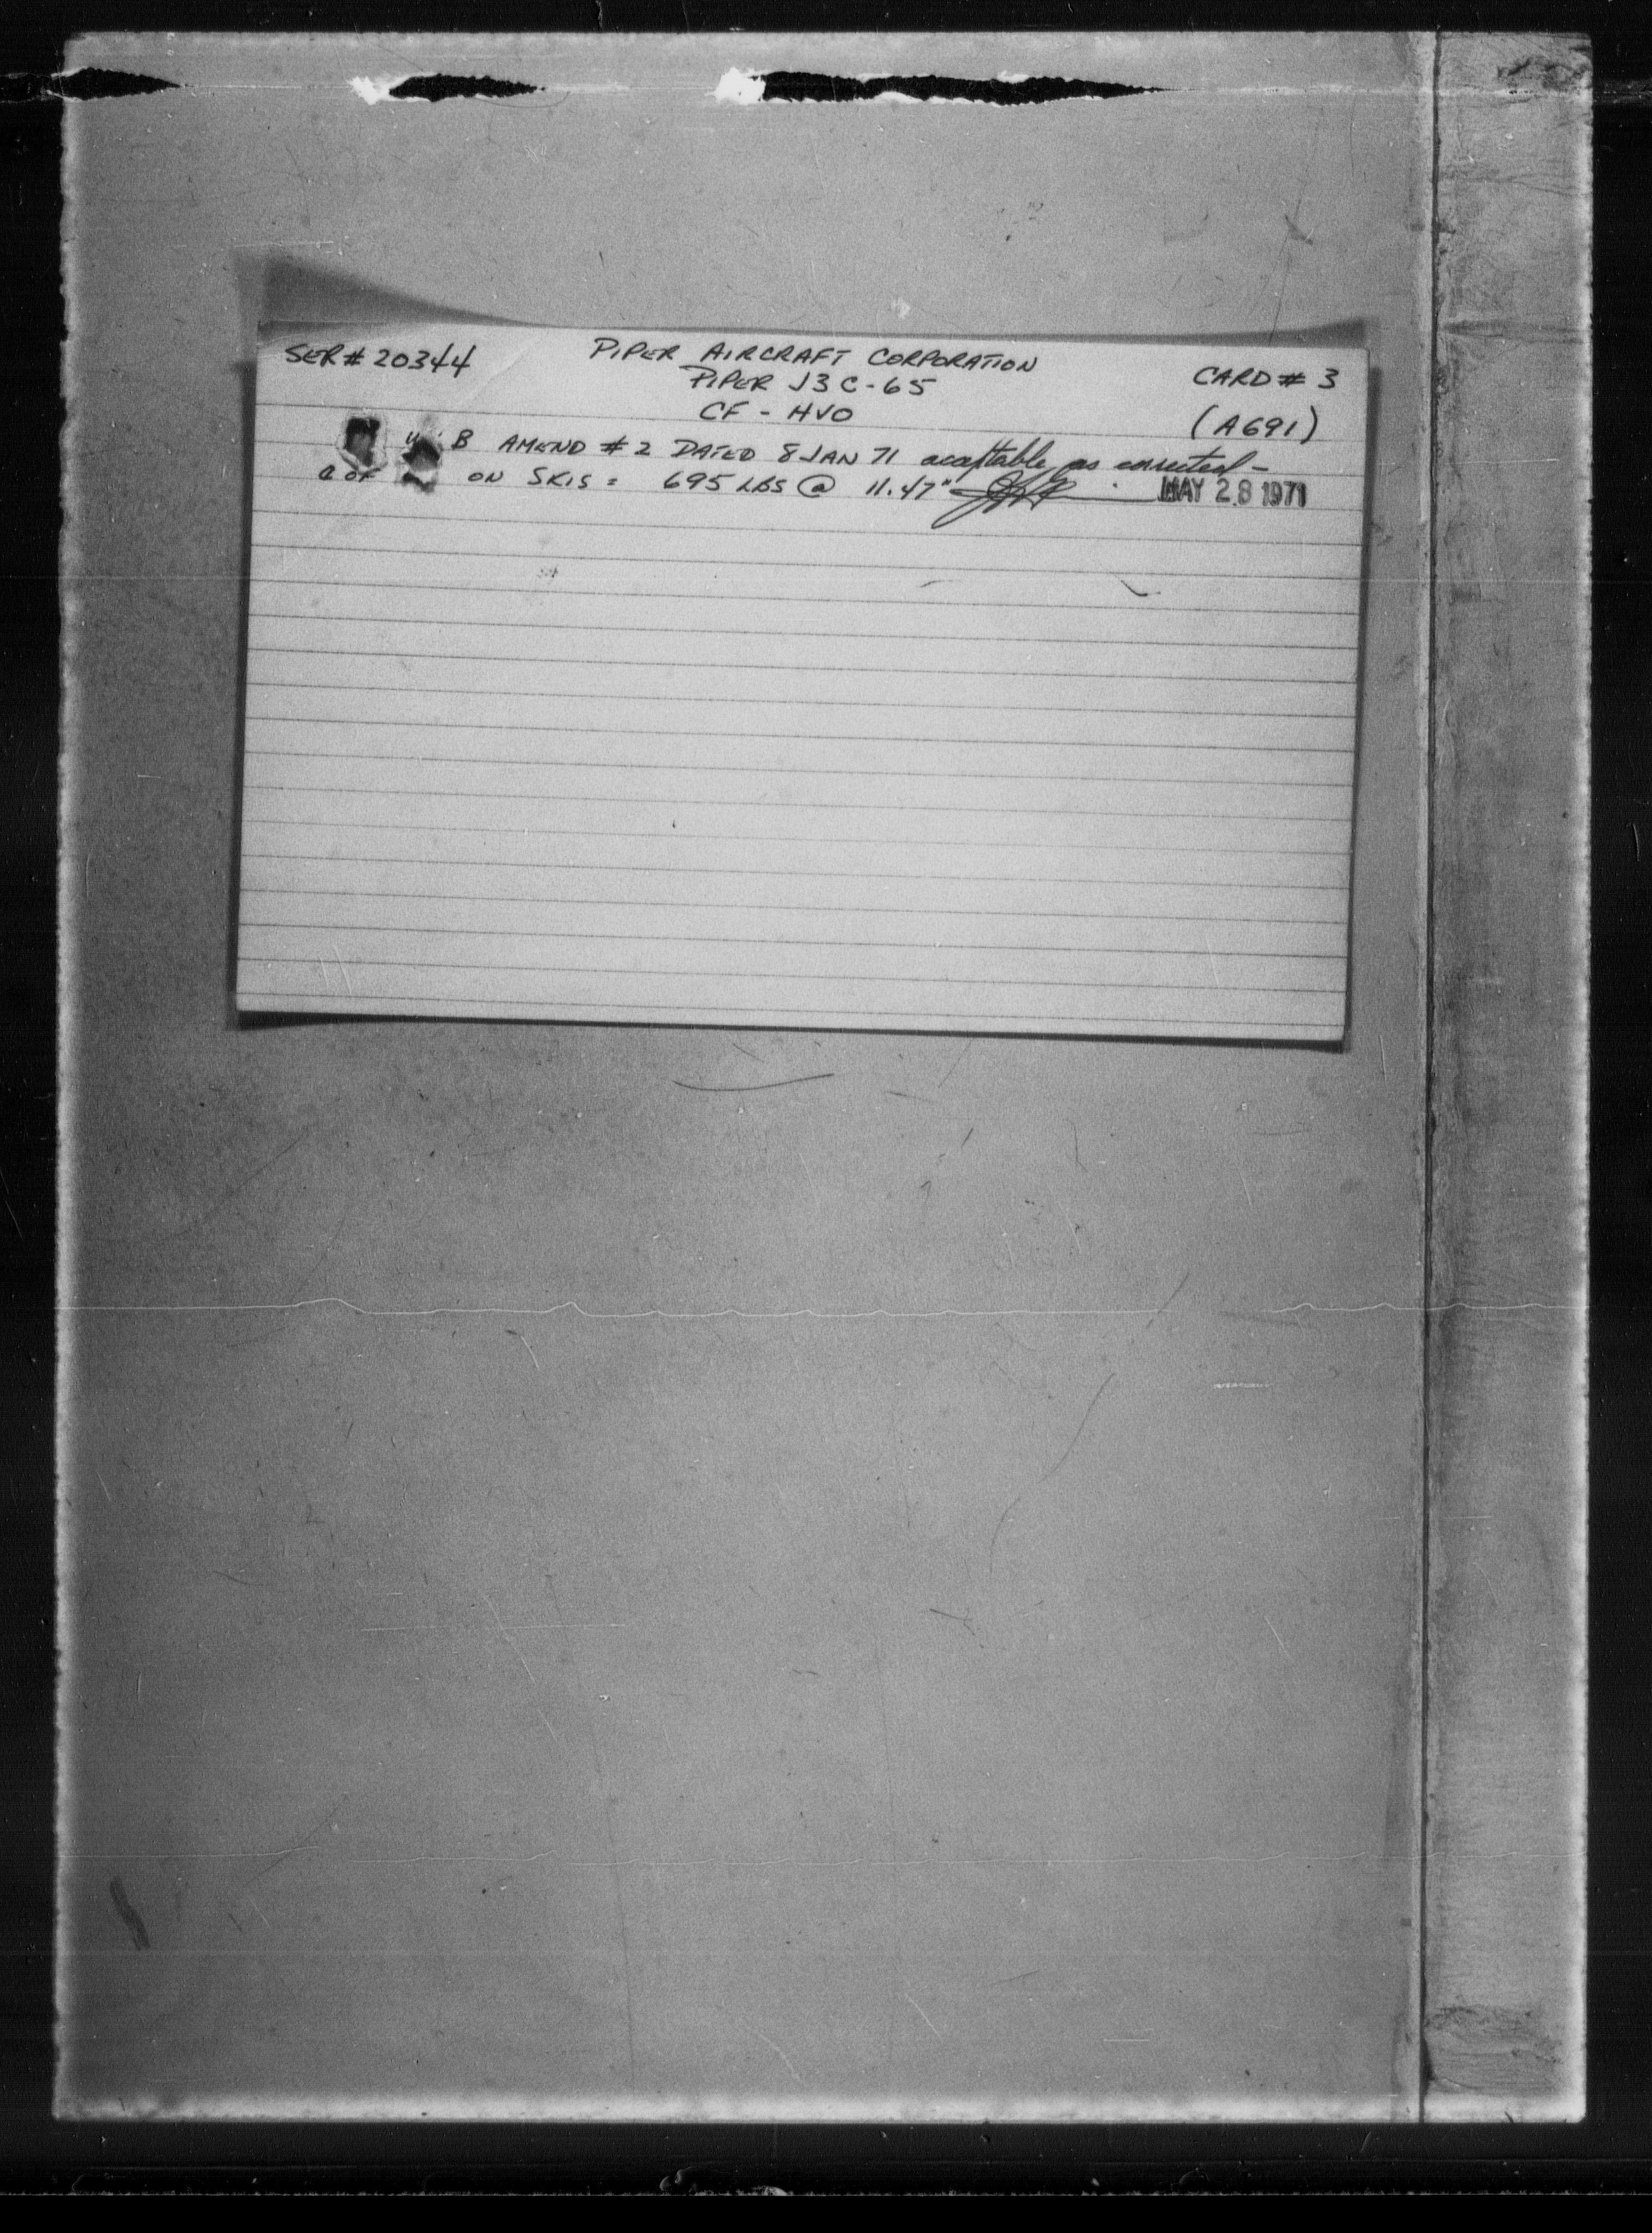 SER# 20344 PIPER AIRCRAFT CORPORATION CARD # 3
PIPER J3C-65
CF - HVO (A691)
B AMEND #2 DATED 8 JAN 71 acceptable as corrected -
C OF ON SKIS = 695 LBS @ 11.47" MAY 28 1971